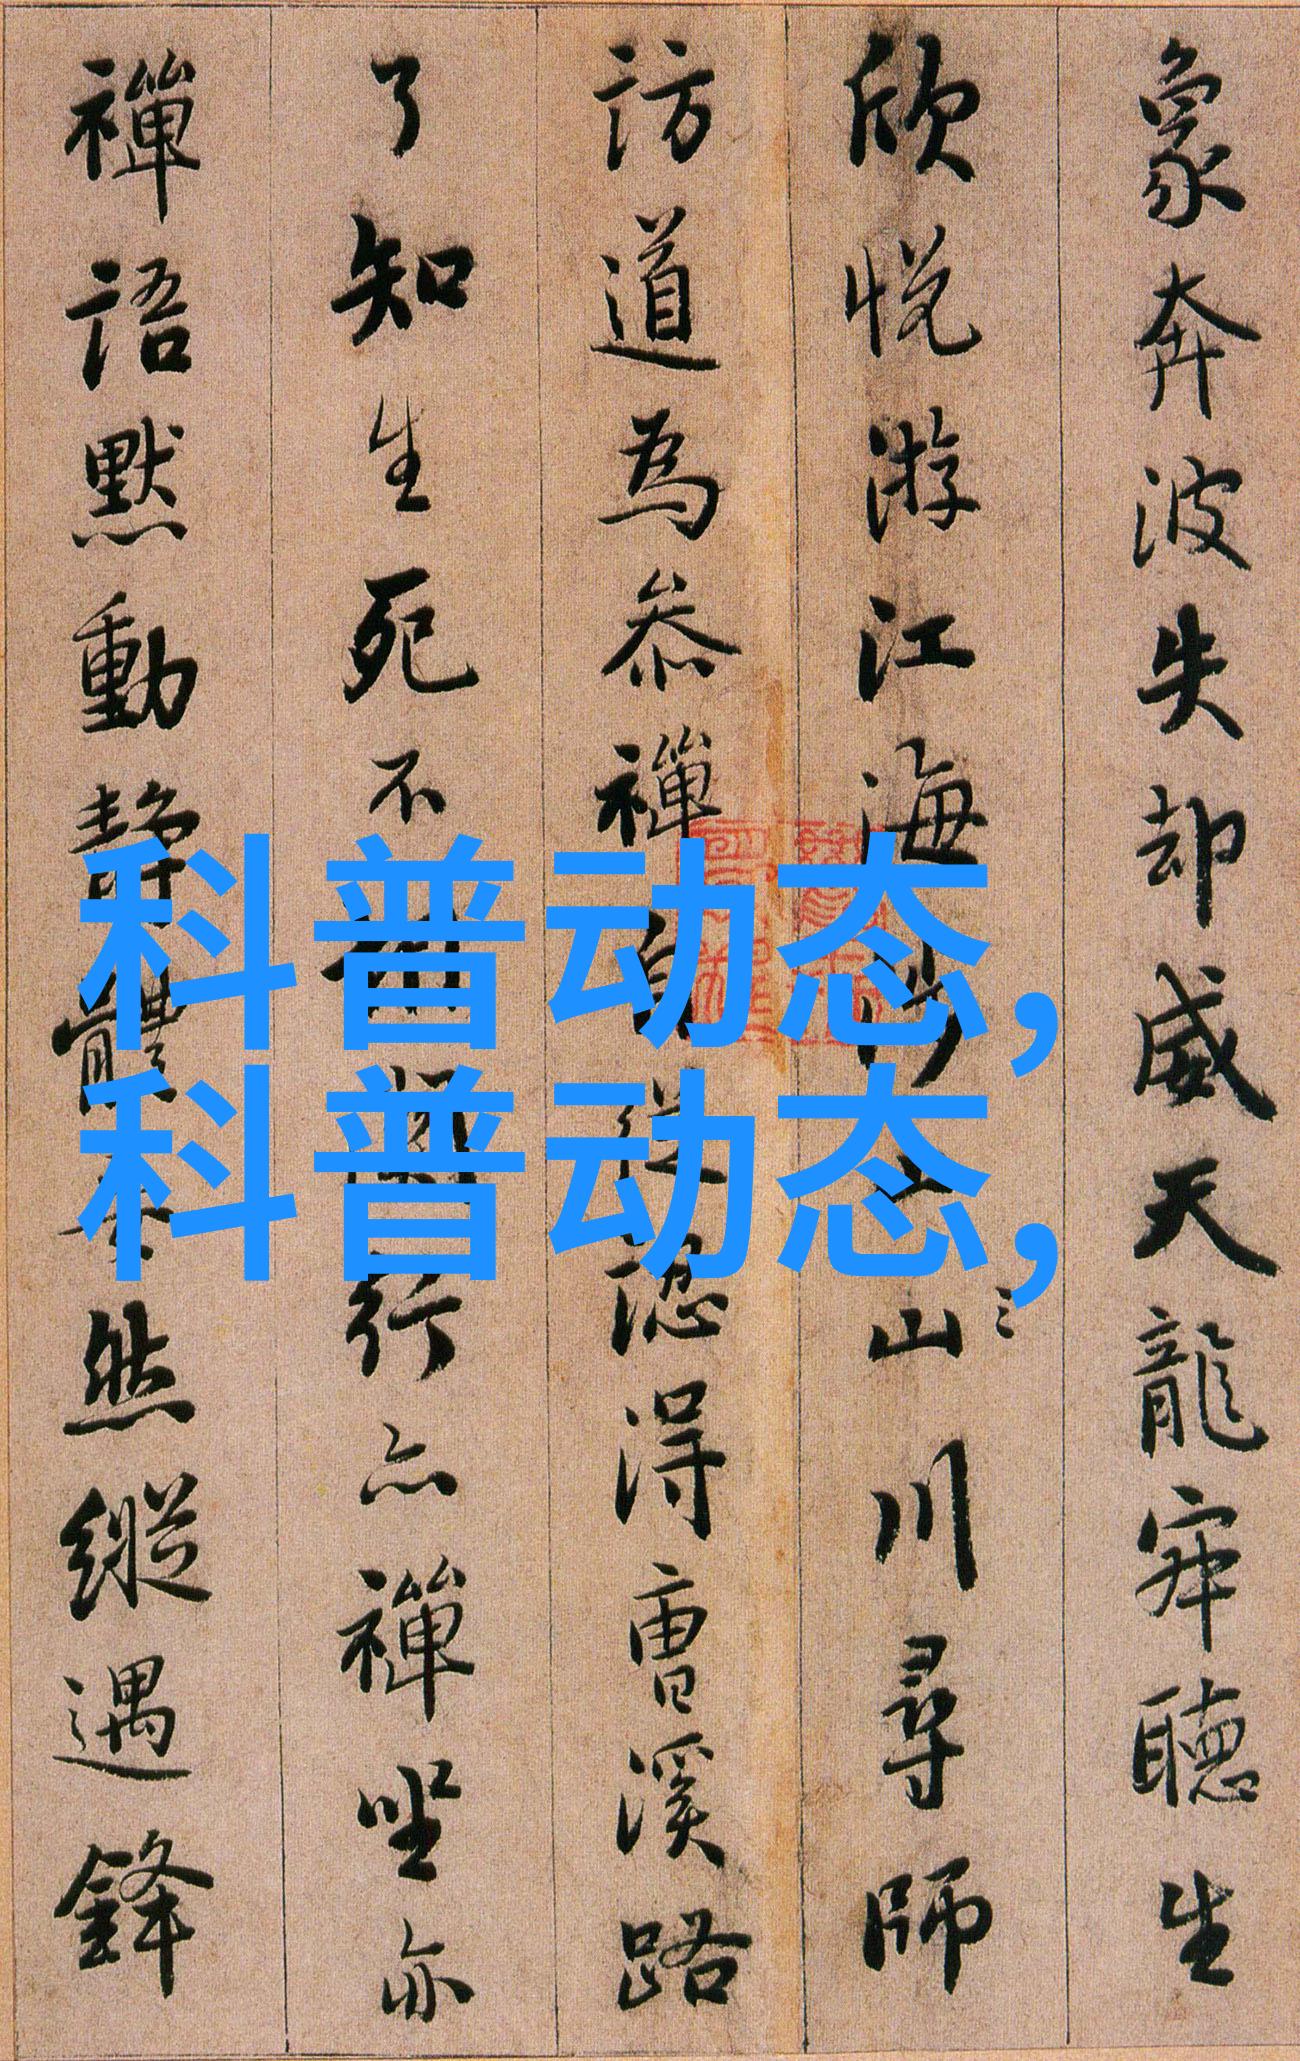 象奔波失却威天龍𡨴聽生
欣悅游江海涉山川尋師
訪道為參禪自從認得曹溪路
了知生死不相關行亦禪坐亦
禪語默動靜體安然縱遇鋒
科普动态,
科普动态,